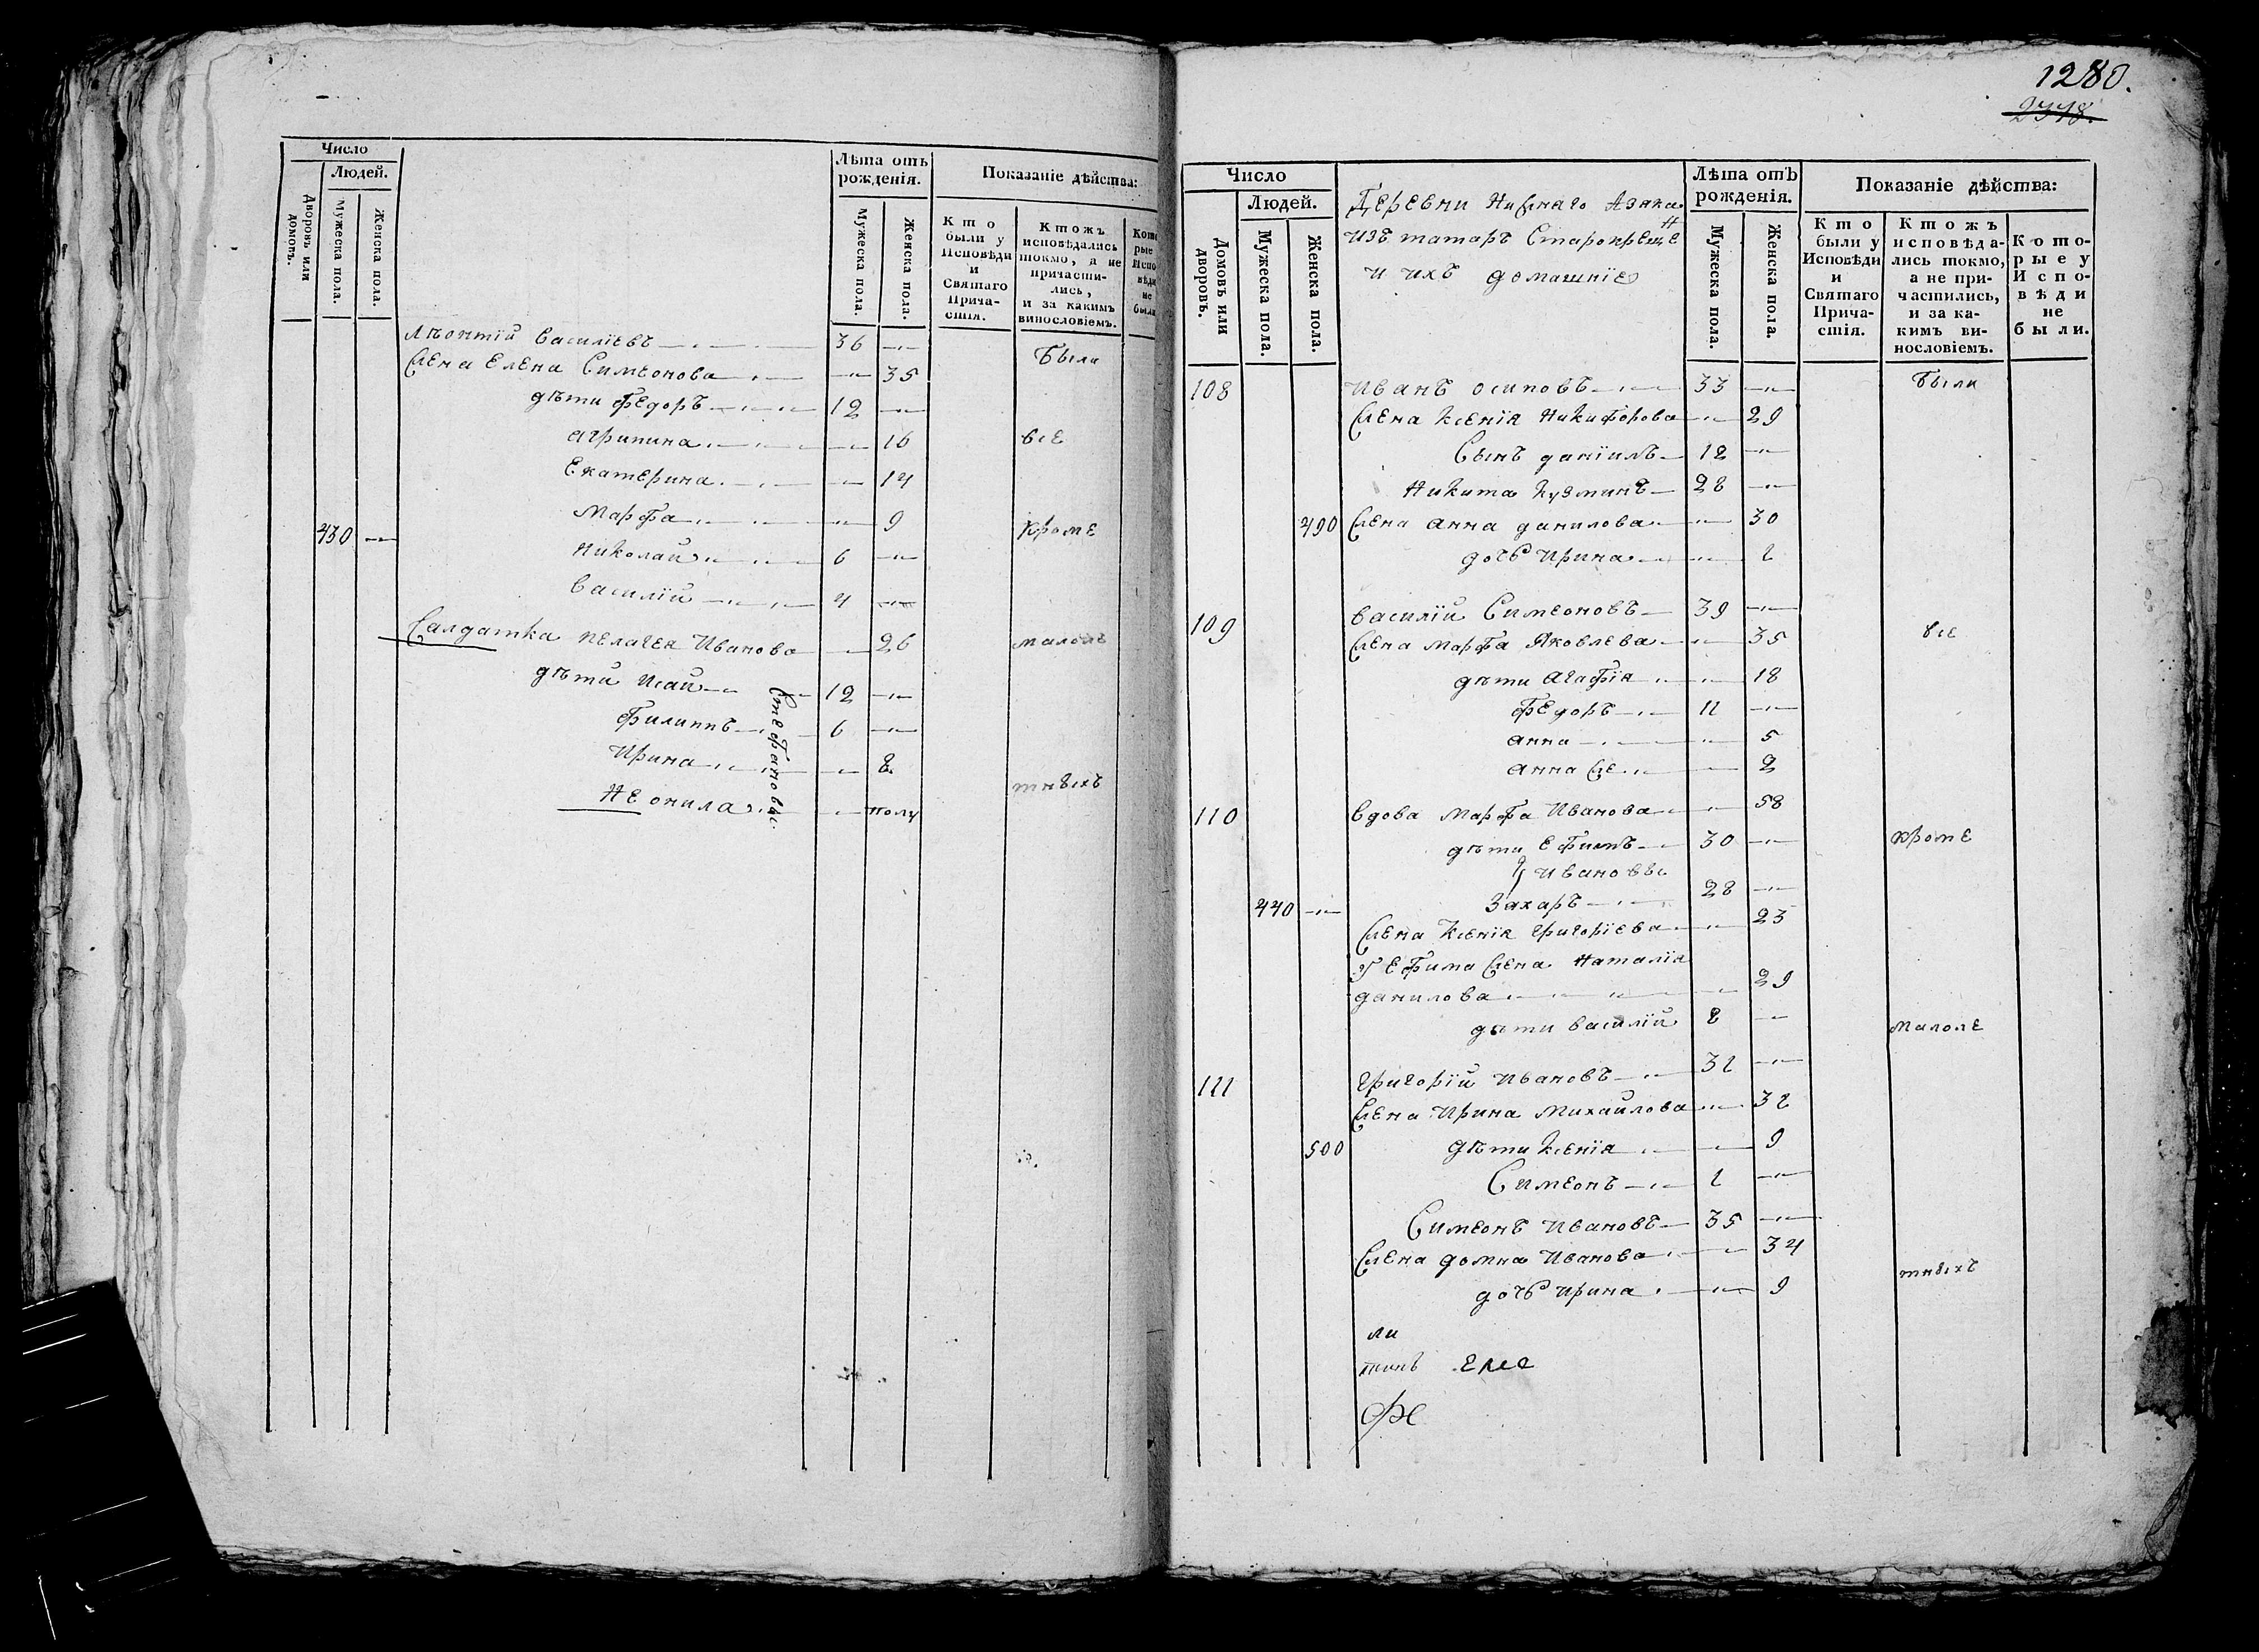 Число
Людей.
Дворовъ или домовъ.
Мужеска пола.
Женска пола.
Лѣта отъ рожденія.
Мужеска пола.
Женска пола.
Показаніе дѣйства:
Кто были у Исповѣди и Святаго Причастія.
Ктожъ исповѣдались токмо, а не причастились, и за какимъ винословіемъ.
Кото
рые
Испо
вѣди
не
были
Лѣонтій Василіевъ 36
Были
Жена Елена Симеонова 35
дѣти Федоръ 12
Агрипина 16
все
Екатерина 14
Марфа 9
430
Кроме
Николай 6
Василій 4
Салдатка Пелагея Иванова 26
малолѣ
дѣти Исай 12
Филиппъ 6
Ирина 8
Стефановы
тныхъ
Неонила полу
1280.
Число
Людей.
Домовъ или дворовъ.
Мужеска пола.
Женска пола.
Деревни Нижнаго Азяка
изъ татаръ Старокрещен
и ихъ домашніе
Лѣта отъ рожденія.
Мужеска пола.
Женска пола.
Показаніе дѣйства:
Кто были у Исповѣди и Святаго Причастія.
Ктожъ исповѣдались токмо, а не причастились, и за какимъ винословіемъ.
Которые у Исповѣди не были.
108 Иванъ Осиповъ 33 Были
Жена Ксенія Никифорова 29
Сынъ Даніилъ 12
Никита Кузминъ 28
490 Жена Анна Данилова 30
дочь Ирина 1
109 Василій Симеоновъ 39
Жена Марфа Яковлева 35 все
дѣти Агафія 18
Федоръ 11
Анна 5
Анна же 2
110 Вдова Марфа Иванова 58
дѣти Ефимъ 30 кроме
Ивановы
440 Захаръ 28
Жена Ксенія Григоріева 23
У Ефима Жена Наталія
Данилова 29
дѣти Василій 8 малоле
111 Григорій Ивановъ 31
Жена Ирина Михаилова 32
500 дѣти Ксенія 9
Симеонъ 1
Симеонъ Ивановъ 35
Жена Домна Иванова 34
тныхъ
дочь Ирина 9
ли